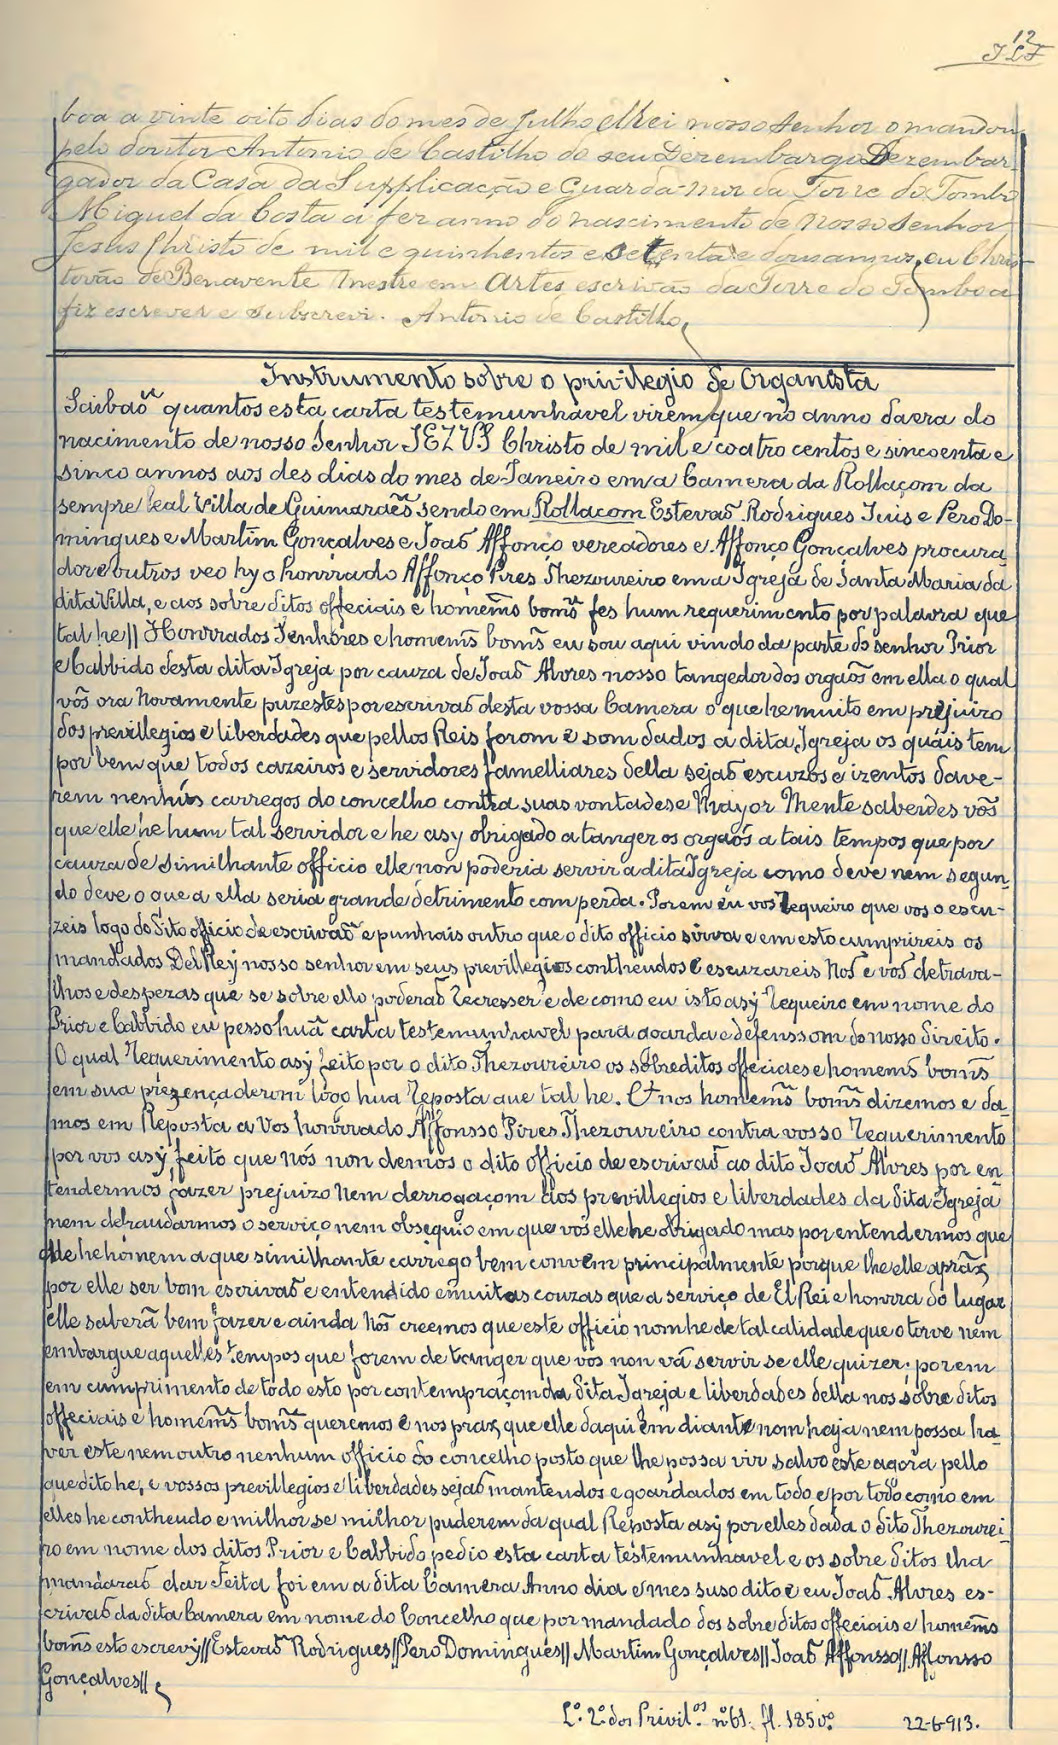 12
JLF
boa a vinte oito dias do mes de Julho elRei nosso senhor o mandou
pelo doutor Antonio de Castilho do seu Dezembargo Dezembar-
gador da Casa da Supplicacção e Guarda-mor da Torre do Tombo
Miguel da Costa a fez anno do nascimento de Nosso Senhor
Jesus Christo de mil e quinhentos e setenta e dous annos, eu Chris-
tovão de Benavente Mestre em Artes escrivão da Torre do Tombo a
fiz escrever e subscrevi. Antonio de Castilho,
Instrumento sobre o privilegio de Organista
Saibaõ quantos esta carta testemunhavel virem que no anno da era do
nacimento de nosso Senhor JEZUS Christo de mil e coatro centos e sincoenta e
sinco annos aos des dias do mes de Janeiro em a Camera da Rollaçom da
sempre leal Villa de Guimaraẽs sendo em Rollacom Estevaõ Rodrigues Juis e Pero Do-
mingues e Martim Gonçalves e Joaõ Affonço vereadores e Affonço Gonçalves procura-
dor e outros veo hy o honrrado Affonço Pires Thezoureiro em a Igreja de Santa Maria da
dita Villa, e aos sobre ditos offeciais e homems boms fes hum requerimento por palavra que
tal he || Honrrados Senhores e homems boms eu sou aqui vindo da parte do senhor Prior
e Cabbido desta dita Igreja por cauza de Joaõ Alvres nosso tangedor dos orgaõs em ella o qual
vós ora Novamente puzestes por escrivaõ desta vossa Camera o que he muito em prejuizo
dos previllegios e liberdades que pellos Reis forom e som dados a dita Igreja os quáis tem
por bem que todos cazeiros e servidores famelliares della sejaõ escuzos e izentos dave-
rem nenhús carregos do concelho contra suas vontades e Mayor Mente saberdes vós
que elle he hum tal servidor e he asy obrigado a tanger os orgaõs a tais tempos que por
cauza de similhante officio elle non poderia servir a dita Igreja como deve nem segun-
do deve o que a ella seria grande detrimento com perda. Porem eu vos Requeiro que vos o escu-
zeis logo do dito officio de escrivaõ e punhais outro que o dito officio sirva e em esto cumprireis os
mandados DelRey nosso senhor em seus previllegios contheudos e escuzareis Nos e vos de trava-
lhos e despezas que se sobre ello poderaõ recresser e de como eu isto asy Requeiro em nome do
Prior e Cabbido eu pesso huã carta testemunhavel para goarda e defenssom do nosso direito.
O qual Requerimento asy feito por o dito Thezoureiro os sobreditos offeciaes e homems boms
em sua prezença derom logo hua Reposta que tal he. E nos homems boms dizemos e da-
mos em Reposta a vos honrrado Affonsso Pires Thezoureiro contra vosso Requerimento
por vos asy feito que nós non demos o dito officio de escrivaõ ao dito Joaõ Alvres por en-
tendermos fazer prejuizo Nem derrogaçom dos previllegios e liberdades da dita Igreja
nem defraudarmos o serviço nem obsequio em que vos elle he obrigado mas por entendermos que
elle he homem a que similhante carrego bem convem principalmente porque lhe elle apráz
por elle ser bom escrivaõ e entendido em muitas couzas que a serviço de El Rei e honrra do lugar
elle saberá bem fazer e ainda Nos creemos que este officio nom he de tal calidade que o torve nem
embargue aquelles tempos que forem de tanger que vos non vá servir se elle quizer: porem
em cumprimento de todo esto por contempraçom da dita Igreja e liberdades della nos sobre ditos
offeciais e homems boms queremos e nos praz que elle daqui em diante nom haja nem possa ha-
ver este nem outro nenhum officio do concelho posto que lhe possa vir salvo este agora pello
que dito he, e vossos previllegios e liberdades sejaõ mantendos e goardados em todo e por todo como em
elles he contheudo e milhor se milhor puderem da qual Reposta asy por elles dada o dito Thezourei-
ro em nome dos ditos Prior e Cabbido pedio esta carta testemunhavel e os sobre ditos lha
mandaraõ dar Feita foi em a dita Camera Anno dia e mes suso dito e eu Joaõ Alvres es-
crivaõ da dita Camera em nome do Concelho que por mandado dos sobre ditos offeciais e homems
boms esto escrevy || Estevaõ Rodrigues || Pero Domingues || Martim Gonçalves || Joaõ Affonsso || Affonsso
Gonçalves ||
L.º 2.º dos Privil.os nº 61. fl. 185 vº. 22-6-913.